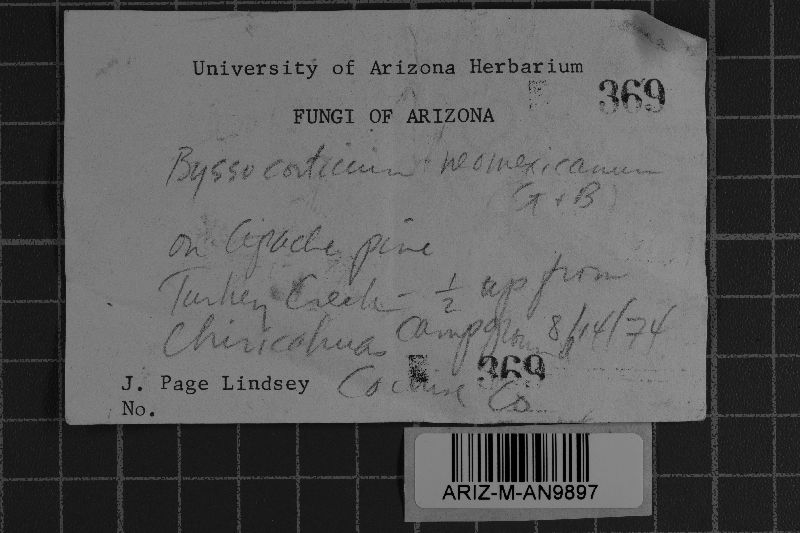 University of Arizona Herbarium
369
FUNGI OF ARIZONA
Byssocorticium neomexicanum
(G + B)
on Apache pine
Turkey Creek - ½ up from
Chiricahuas Campground 8/14/74
369
J. Page Lindsey Cochise Co.
No.
ARIZ-M-AN9897